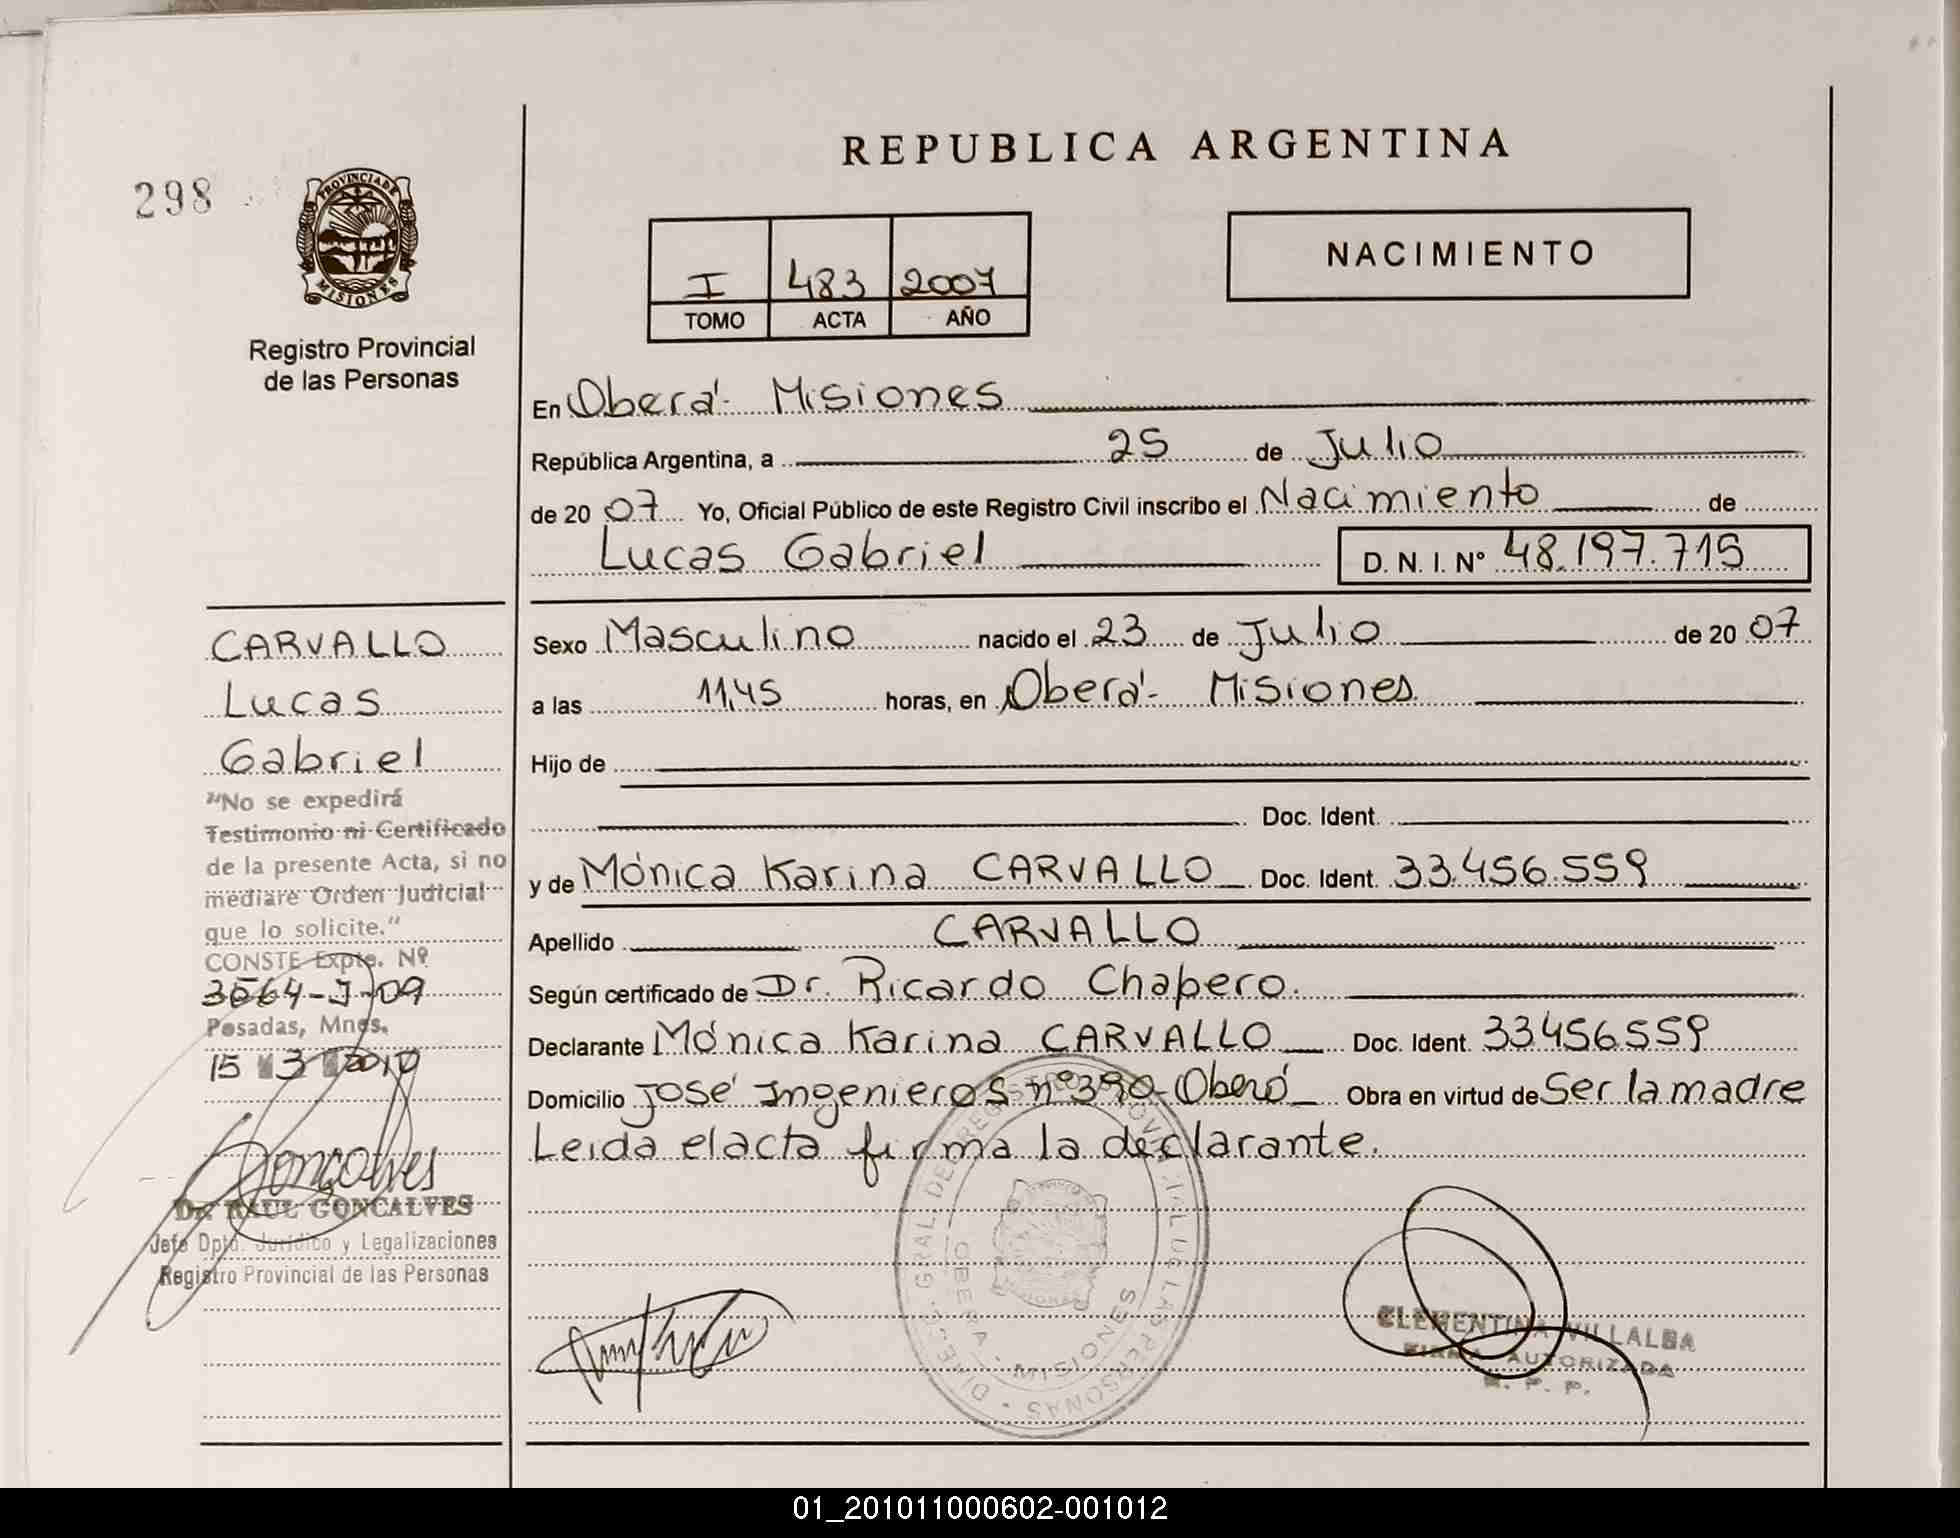 298
PROVINCIA DE
MISIONES
Registro Provincial
de las Personas
REPUBLICA ARGENTINA
I 483 2007
TOMO ACTA AÑO
NACIMIENTO
En Oberá - Misiones
República Argentina, a 25 de Julio
de 20 07 Yo, Oficial Público de este Registro Civil inscribo el Nacimiento de
Lucas Gabriel D. N. I. Nº 48.197.715
CARVALLO
Lucas
Gabriel
"No se expedirá
Testimonio ni Certificado
de la presente Acta, si no
mediare Orden Judicial
que lo solicite."
CONSTE Expte. Nº
3564-J-09
Posadas, Mnes.
15 3 2010
Goncalves
Dr. RAUL GONCALVES
Jefe Dpto. Jurídico y Legalizaciones
Registro Provincial de las Personas
Sexo Masculino nacido el 23 de Julio de 20 07
a las 11,45 horas, en Oberá - Misiones
Hijo de
Doc. Ident.
y de Mónica Karina CARVALLO Doc. Ident. 33.456.559
Apellido CARVALLO
Según certificado de Dr. Ricardo Chapero.
Declarante Mónica Karina CARVALLO Doc. Ident. 33456559
Domicilio José Ingenieros nº390-Oberá Obra en virtud de Ser la madre
Leida el acta firma la declarante.
OBERA - MISIONES
CLEMENTINA VILLALBA
FIRMA AUTORIZADA
R. P. P.
01_201011000602-001012